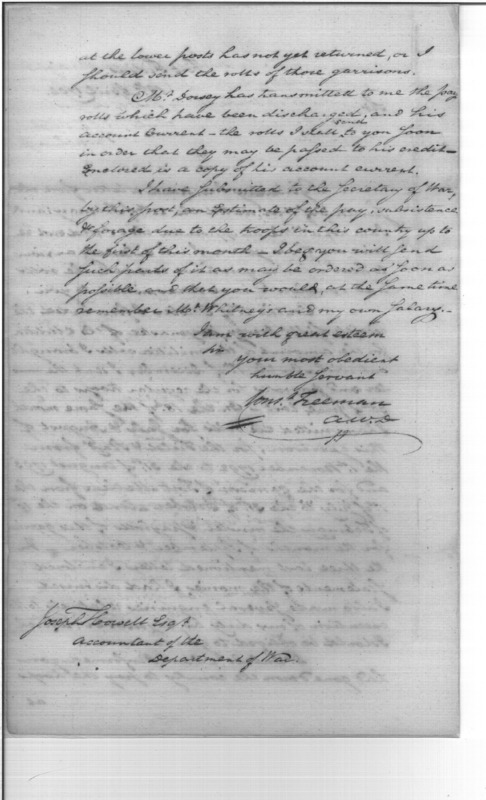 at the lower posts has not yet returned, or I
should send the rolls of those garrisons.
Mr. Dorsey has transmitted to me the pay
rolls which have been discharged, and his
account Current - the rolls I shall send to you soon
in order that they may be passed to his credit -
Enclosed is a copy of his account current.
I have submitted to the Secretary of War,
by this post, an Estimate of the pay, subsistence
& forage due to the troops in this country up to
the first of this month - I beg you will send
such parts of it as may be ordered as soon as
possible, and that you would, at the same time
remember Mr. Whitney's and my own Salary. -
I am with great esteem
Sir
your most obedient
humble servant
Cons.t Freeman
A.W.D
Joseph Howell Esqr.
Accountant of the
Department of War.